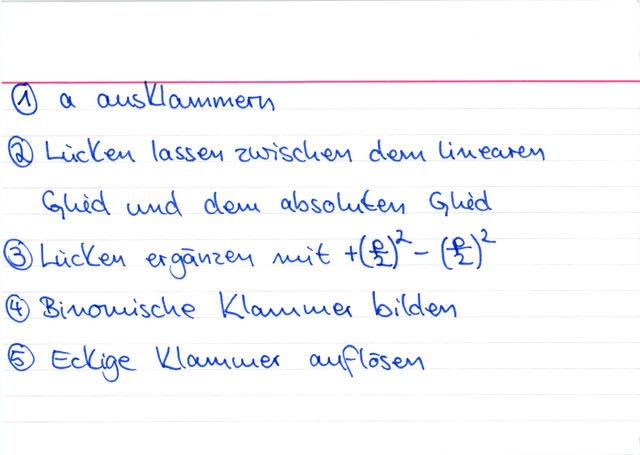 ① a ausklammern
② Lücken lassen zwischen dem linearen
Glied und dem absoluten Glied
③ Lücken ergänzen mit +(p/2)² - (p/2)²
④ Binomische Klammer bilden
⑤ Eckige Klammer auflösen